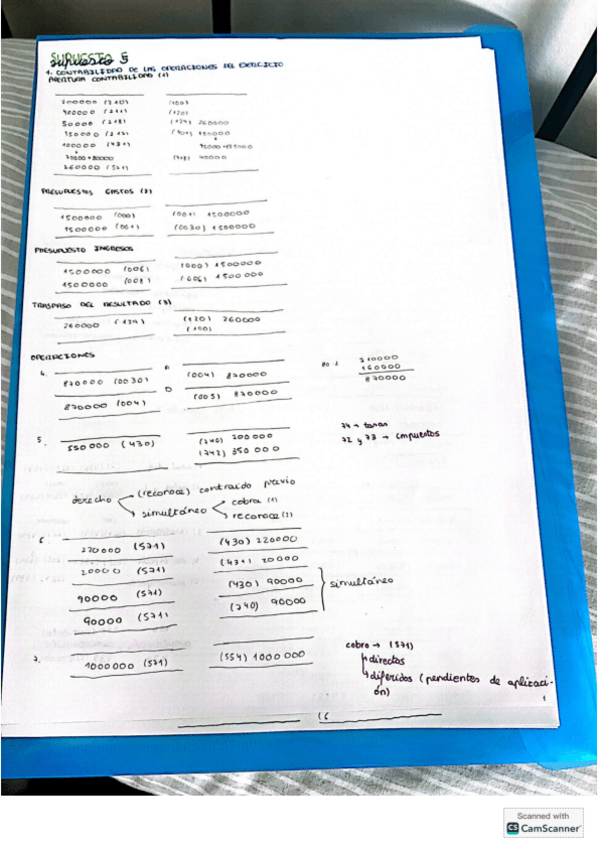 SUPUESTO 5
1. CONTABILIDAD DE LAS OPERACIONES DEL EJERCICIO
APERTURA CONTABILIDAD (1)
(100)
(120)
50000 (218) (129) 260000
100000 (431)
260000 (571)
PRESUPUESTOS GASTOS (2)
1500000 (000) (001) 1500000
1500000 (001) (0030) 1500000
PRESUPUESTO INGRESOS
1500000 (006) (000) 1500000
1500000 (008) (006) 1500000
TRASPASO DEL RESULTADO (3)
260000 (129) (120) 260000
OPERACIONES
4. A
870000 (0030) (004) 870000
D
870000 (004) (005) 870000
160000
870000
5.
550000 (430) (740) 200000
(742) 350000
74 → tasas
72 y 73 → impuestos
derecho (reconoce) contraído previo
simultáneo cobra (1)
reconoce (2)
6.
220000 (571) (430) 220000
20000 (571) (431) 20000
90000 (571) (430) 90000
simultáneo
90000 (571) (740) 90000
7.
1000000 (571) (554) 1000000
cobro → (571)
directos
diferidos (pendientes de aplicaci-
ón)
1
(6
Scanned with
CS CamScanner